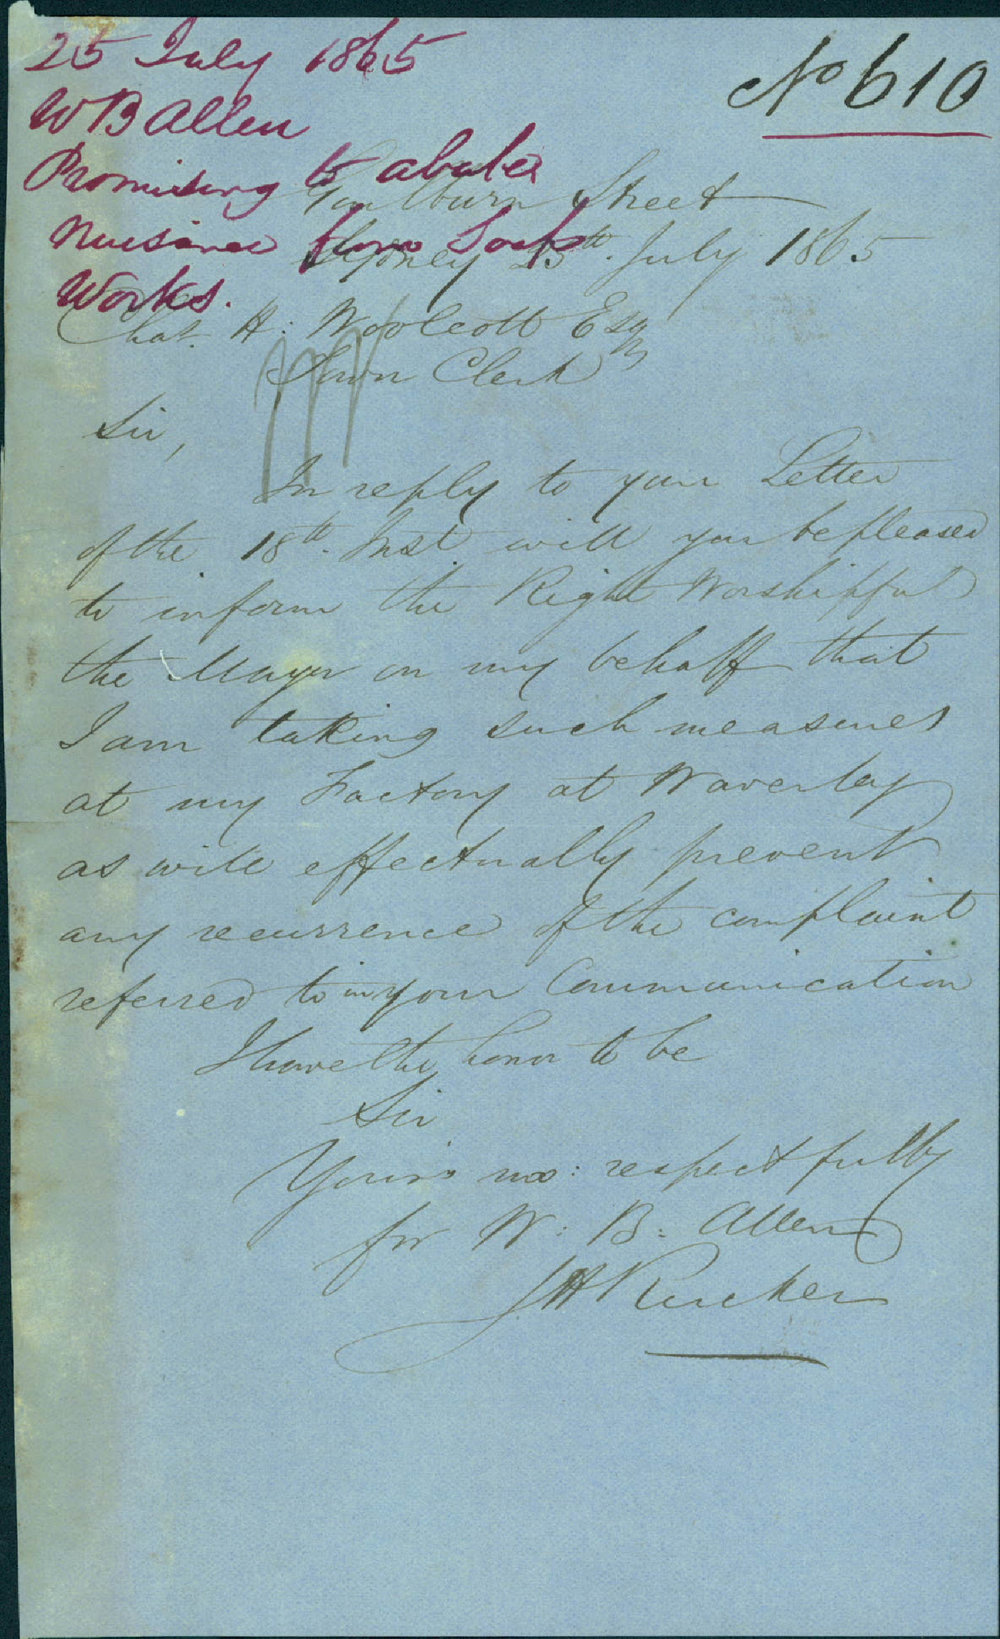 25 July 1865
W B Allen
Promising to abate
Nuisance from Soap
Works.
No 610
Goulburn Street
Sydney 25th July 1865
Chas. H: Woolcott Esqr
Town Clerk
Sir,
In reply to your Letter
of the 18th. Inst will you be pleased
to inform the Right Worshipful
the Mayor on my behalf that
I am taking such measures
at my Factory at Waverley
as will effectually prevent
any recurrence of the complaint
referred to in your Communication
I have the honor to be
Sir
Yours mo: respectfully
for W: B: Allen
J H Rucker